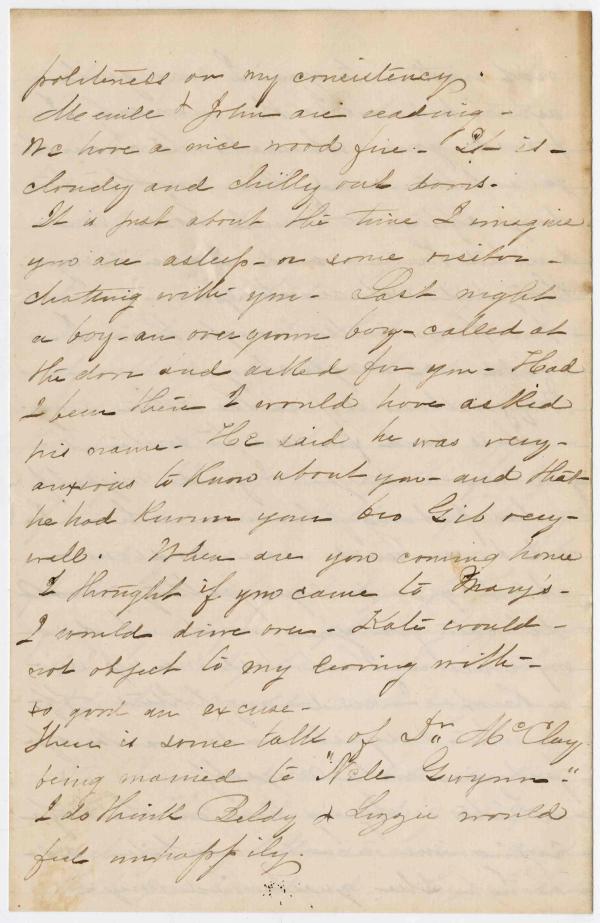 politeness or my consistency.
& John are reading -
We have a nice wood fire - It is -
cloudy and chilly out doors.
It is just about the time I imagine
you are asleep - or some visitor -
chatting with you - Last night
a boy - an over grown boy - called at
the door and asked for you - Had
I been there I would have asked
his name - He said he was very -
anxious to know about you - and that
he had known your bro Gib very -
well. When are you coming home
I thought if you came to Mary's -
I would drive over - Kate would -
not object to my leaving with -
so good an excuse -
There is some talk of Dr. McClay
being married to "Nele Gwynn -"
I do think & Lizzie would
feel unhappily.